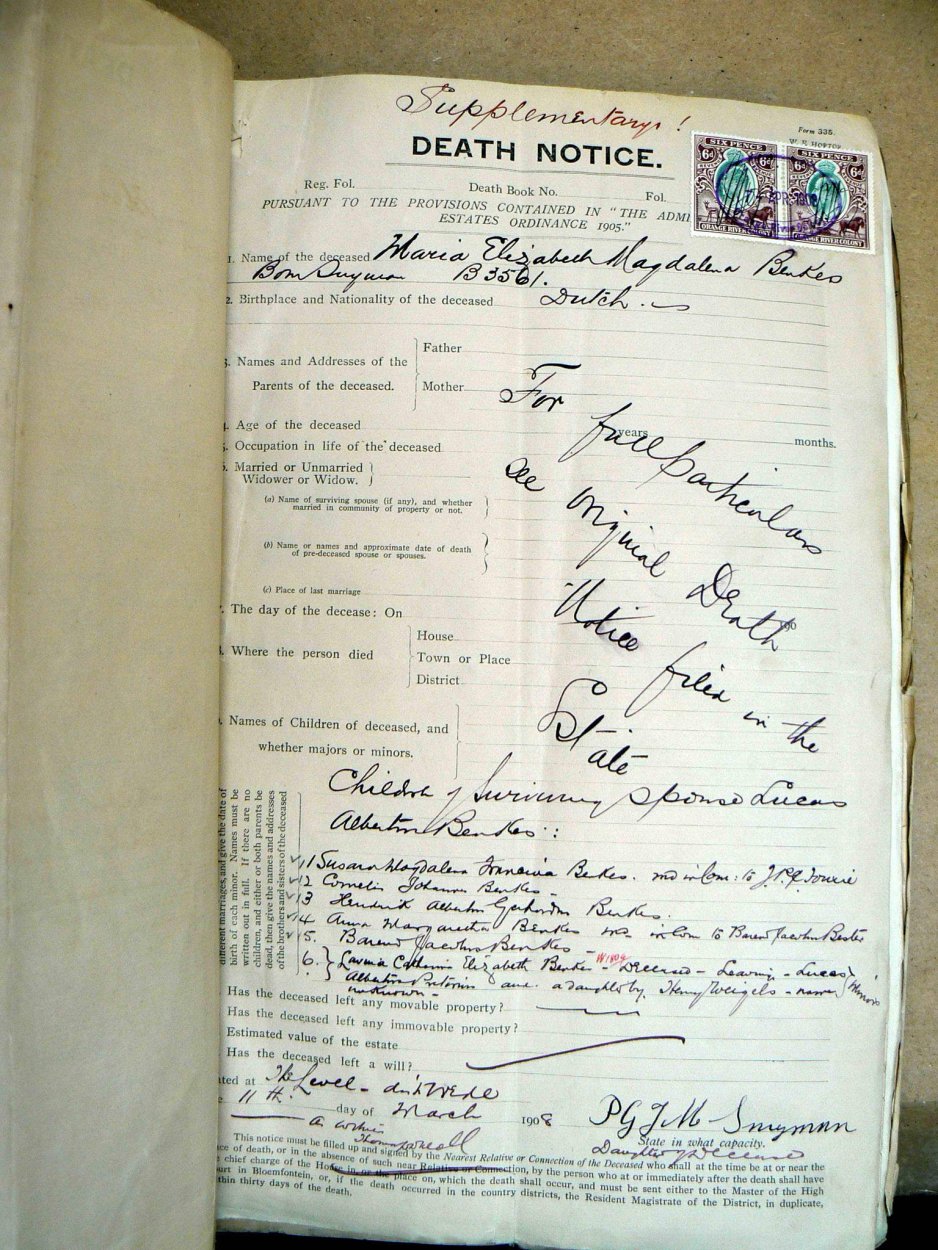 Supplementary!
Form 335.
DEATH NOTICE.
Reg. Fol. Death Book No. Fol.
PURSUANT TO THE PROVISIONS CONTAINED IN "THE ADMI
ESTATES ORDINANCE 1905."
SIX PENCE SIX PENCE
6d 6d 6d
ORANGE RIVER COLONY RIVER COLONY
1. Name of the deceased Maria Elizabeth Magdalena Benkes
Born B3561.
2. Birthplace and Nationality of the deceased Dutch.
Father
3. Names and Addresses of the
Parents of the deceased.
Mother
For full particulars
4. Age of the deceased years months.
5. Occupation in life of the deceased
6. Married or Unmarried
Widower or Widow.
see original Death
(a) Name of surviving spouse (if any), and whether
married in community of property or not.
(b) Name or names and approximate date of death
of pre-deceased spouse or spouses.
(c) Place of last marriage
Notice filed in the
The day of the decease: On 190
House
Where the person died Town or Place
District
Estate
Names of Children of deceased, and
whether majors or minors.
Children of surviving spouse Lucas
Benkes:
different marriages, and give the date of
birth of each minor. Names must be
written out in full. If there are no
children, and either or both parents be
dead, then give the names and addresses
of the brothers and sisters of the deceased
1 Susara Magdalena Benkes. to
2 Cornelis Johannes Benkes
3 Hendrik Benkes.
4 Anna Margaretha Benkes to Barend Jacobus Bester
5. Barend Jacobus Benkes
6. Catharina Elizabeth Benkes Deceased - Leaving - Lucas
and a daughter by Henry Weigels - name
unknown - Minors
Has the deceased left any movable property?
Has the deceased left any immovable property?
Estimated value of the estate
Has the deceased left a will?
ated at The Level
11th. day of March 1908
PGJM Snyman
State in what capacity.
Daughter of Deceased
As witness
This notice must be filled up and signed by the Nearest Relative or Connection of the Deceased who shall at the time be at or near the
ce of death, or in the absence of such near Relative or Connection, by the person who at or immediately after the death shall have
chief charge of the House in, or the place on, which the death shall occur, and must be sent either to the Master of the High
urt in Bloemfontein, or, if the death occurred in the country districts, the Resident Magistrate of the District, in duplicate,
thin thirty days of the death,